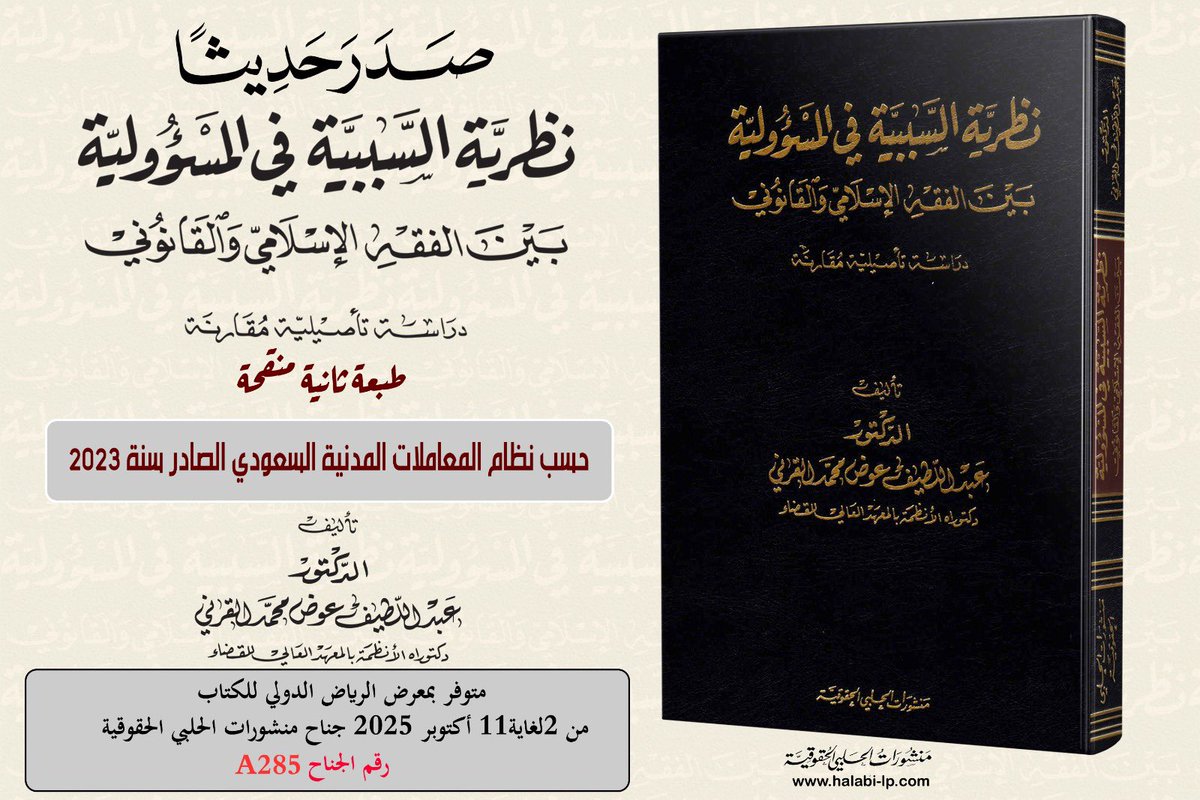 صَدَرَ حَدِيثًا
نظريَّة السَّببيَّة في المسْؤُوليَّة
بَيْنَ الفقهِ الإسْلَاميّ وَالقَانوُنيْ
دراسَة تأصيْليَّة مُقَارنَة
طبعة ثانية منقحة
حسب نظام المعاملات المدنية السعودي الصادر سنة 2023
تأليف
الدّكتورْ
عَبْد اللّطيف عوض محمَّد القرني
دكتوراه الأنظمَة بالمعهَد العَالي للقضَاء
متوفر بمعرض الرياض الدولي للكتاب
من 2لغاية11 أكتوبر 2025 جناح منشورات الحلبي الحقوقية
رقم الجناح A285
نظريَّة السَّببيَّة في المسْؤُوليَّة
بَيْنَ الفقهِ الإسْلَاميّ وَالقَانوُنيْ
دراسَة تأصيْليَّة مُقَارنَة
تأليف
الدّكتورْ
عَبْد اللّطيف عوض محمَّد القرني
دكتوراه الأنظمَة بالمعهَد العَالي للقضَاء
منشورات الحلبي الحقوقيَّة
نظريَّة السَّببيَّة في المسْؤُوليَّة
بَيْنَ الفقهِ الإسْلَاميّ وَالقَانوُنيْ
منشورات الحلبي
الحقوقيَّة
منشورات الحلبي الحقوقيَّة
www.halabi-lp.com